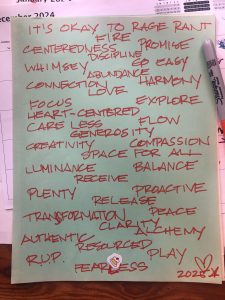 January 2024
December 2024
IT'S OKAY TO RAGE RANT
FIRE
CENTEREDNESS PROMISE
DISCIPLINE
WHIMSEY GO EASY
ABUNDANCE
CONNECTION HARMONY
LOVE
FOCUS EXPLORE
HEART-CENTERED
CARE LESS FLOW
GENEROSITY
CREATIVITY COMPASSION
SPACE FOR ALL
LUMINANCE BALANCE
RECEIVE
PLENTY PROACTIVE
RELEASE
TRANSFORMATION PEACE
CLARITY
ALCHEMY
AUTHENTIC
RESOURCED
R.U.P. PLAY
FEARLESS
2025